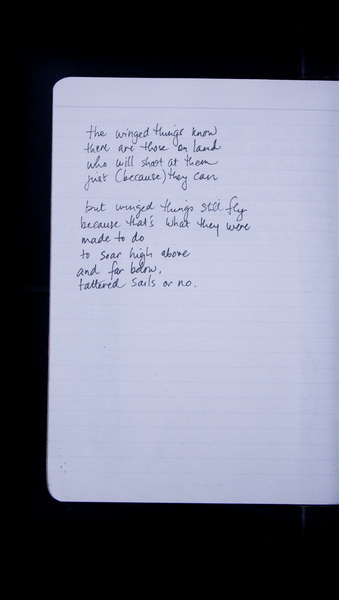 the winged things know
there are those on land
who will shoot at them
just (because) they can
but winged things still fly
because that's what they were
made to do
to soar high above
and far below,
tattered sails or no.